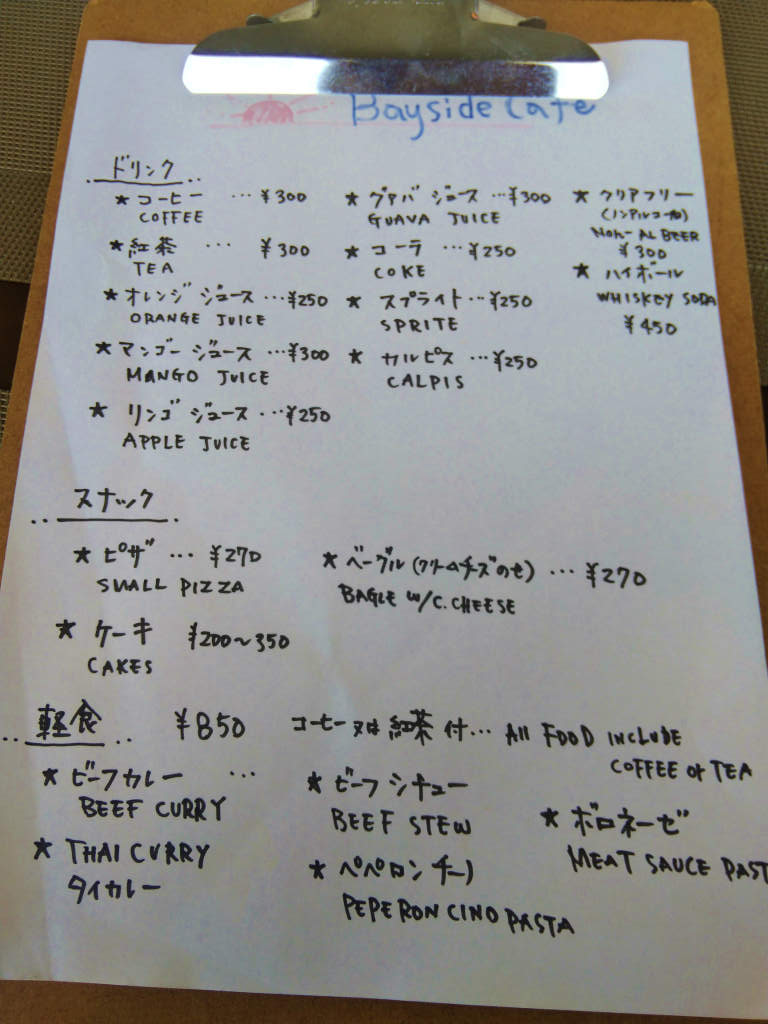 Bayside Cafe
ドリンク
★コーヒー ... ¥300
COFFEE
★紅茶 ... ¥300
TEA
★オレンジ ジュース ... ¥250
ORANGE JUICE
★マンゴー ジュース ... ¥300
MANGO JUICE
★ リンゴ ジュース ... ¥250
APPLE JUICE
★ グァバ ジュース ... ¥300
GUAVA JUICE
★ コーラ ... ¥250
COKE
★ スプライト ... ¥250
SPRITE
★ カルピス ... ¥250
CALPIS
★ クリアフリー
(ノンアルコール)
NON-AL BEER
¥300
★ ハイボール
WHISKEY SODA
¥450
スナック
★ ピザ ... ¥270
SMALL PIZZA
★ ベーグル(クリームチーズのせ) ... ¥270
BAGLE W/C.CHEESE
★ ケーキ ¥200~350
CAKES
軽食 ¥850 コーヒー又は紅茶付... All FOOD INCLUDE
COFFEE or TEA
★ ビーフカレー ...
BEEF CURRY
★ THAI CURRY
タイカレー
★ ビーフシチュー
BEEF STEW
★ ペペロンチーノ
PEPERONCINO PASTA
★ ボロネーゼ
MEAT SAUCE PAST